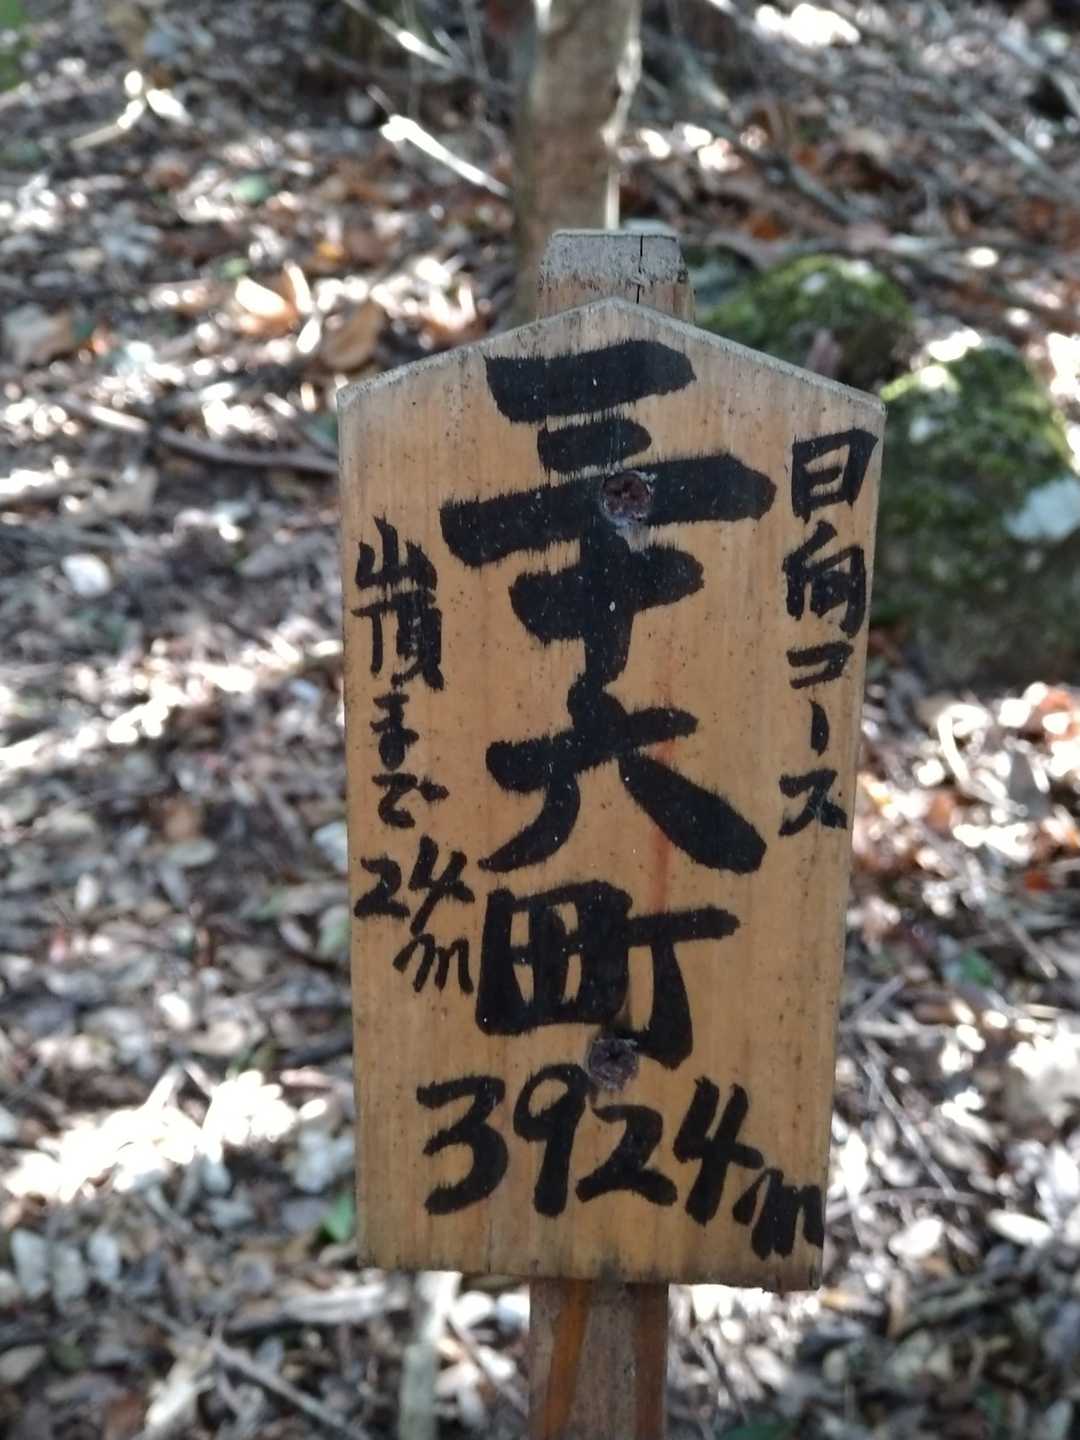 日向コース
三十六町
3924m
山頂まで
24m